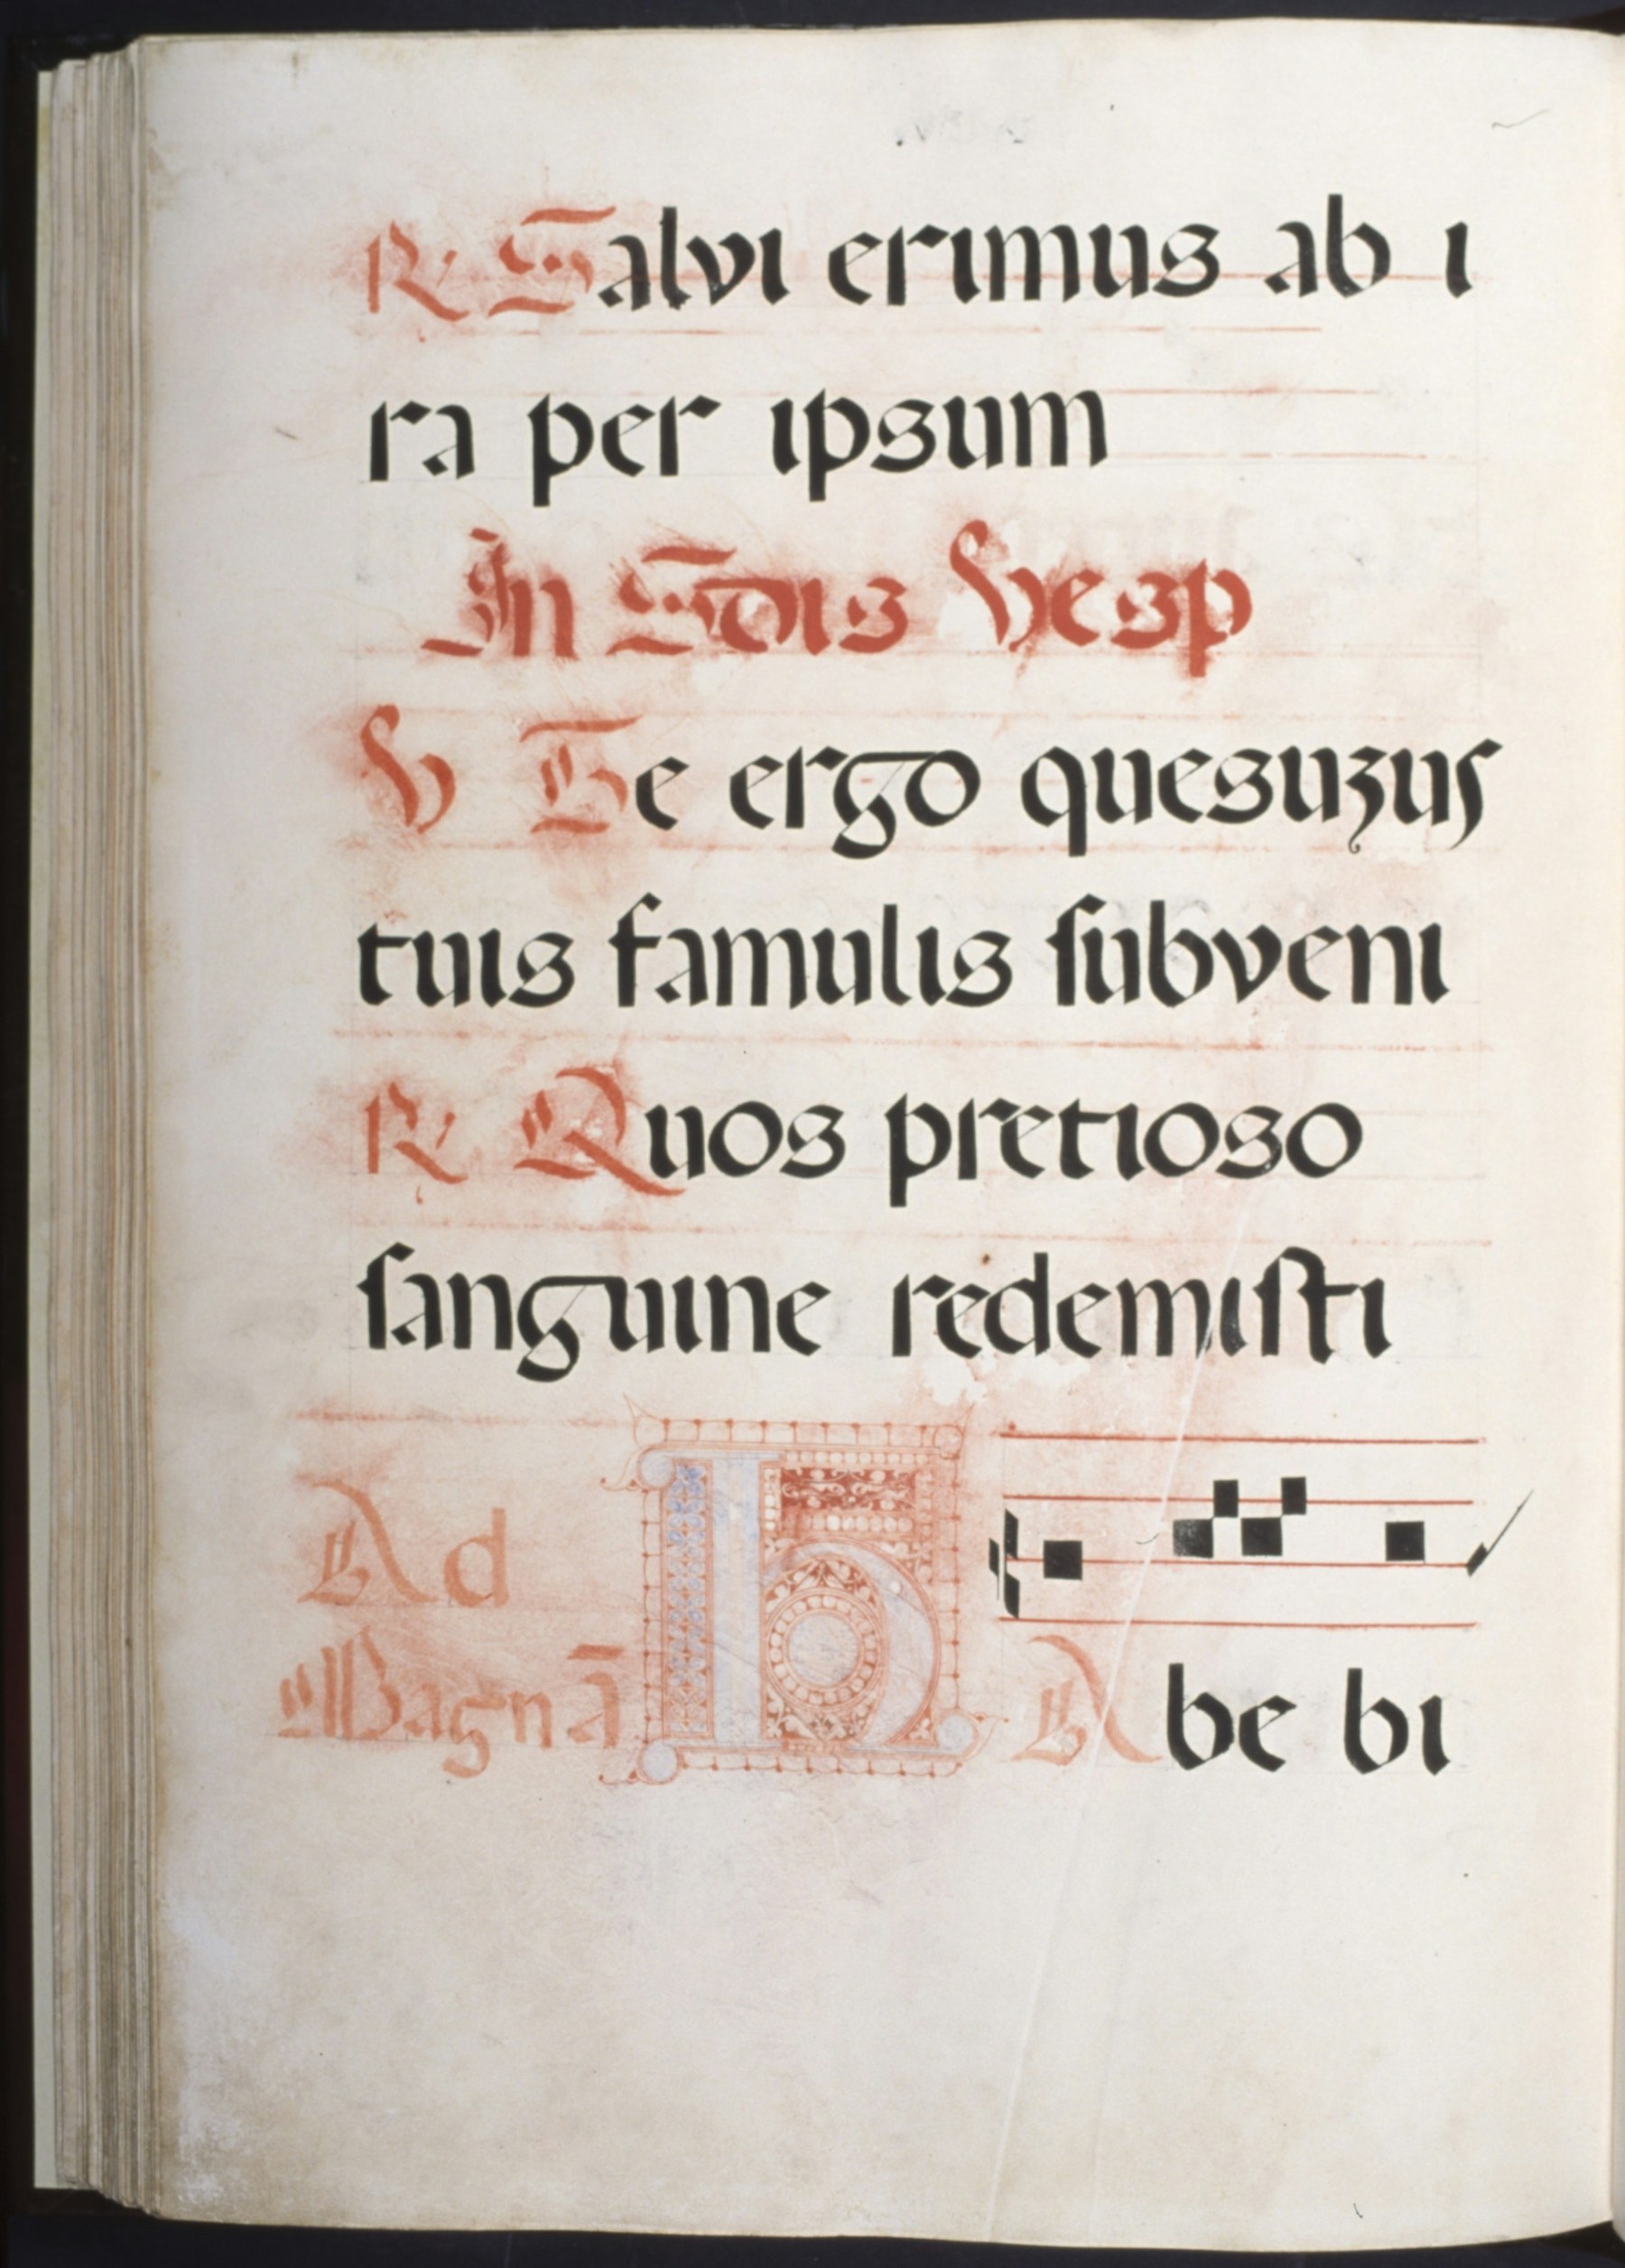 ℟ Salvi erimus ab i
ra per ipsum
In Sdis Vesp
V Te ergo quesuꝫus
tuis famulis subveni
℟ Quos pretioso
sanguine redemisti
Ad
Magnā H Abe bi